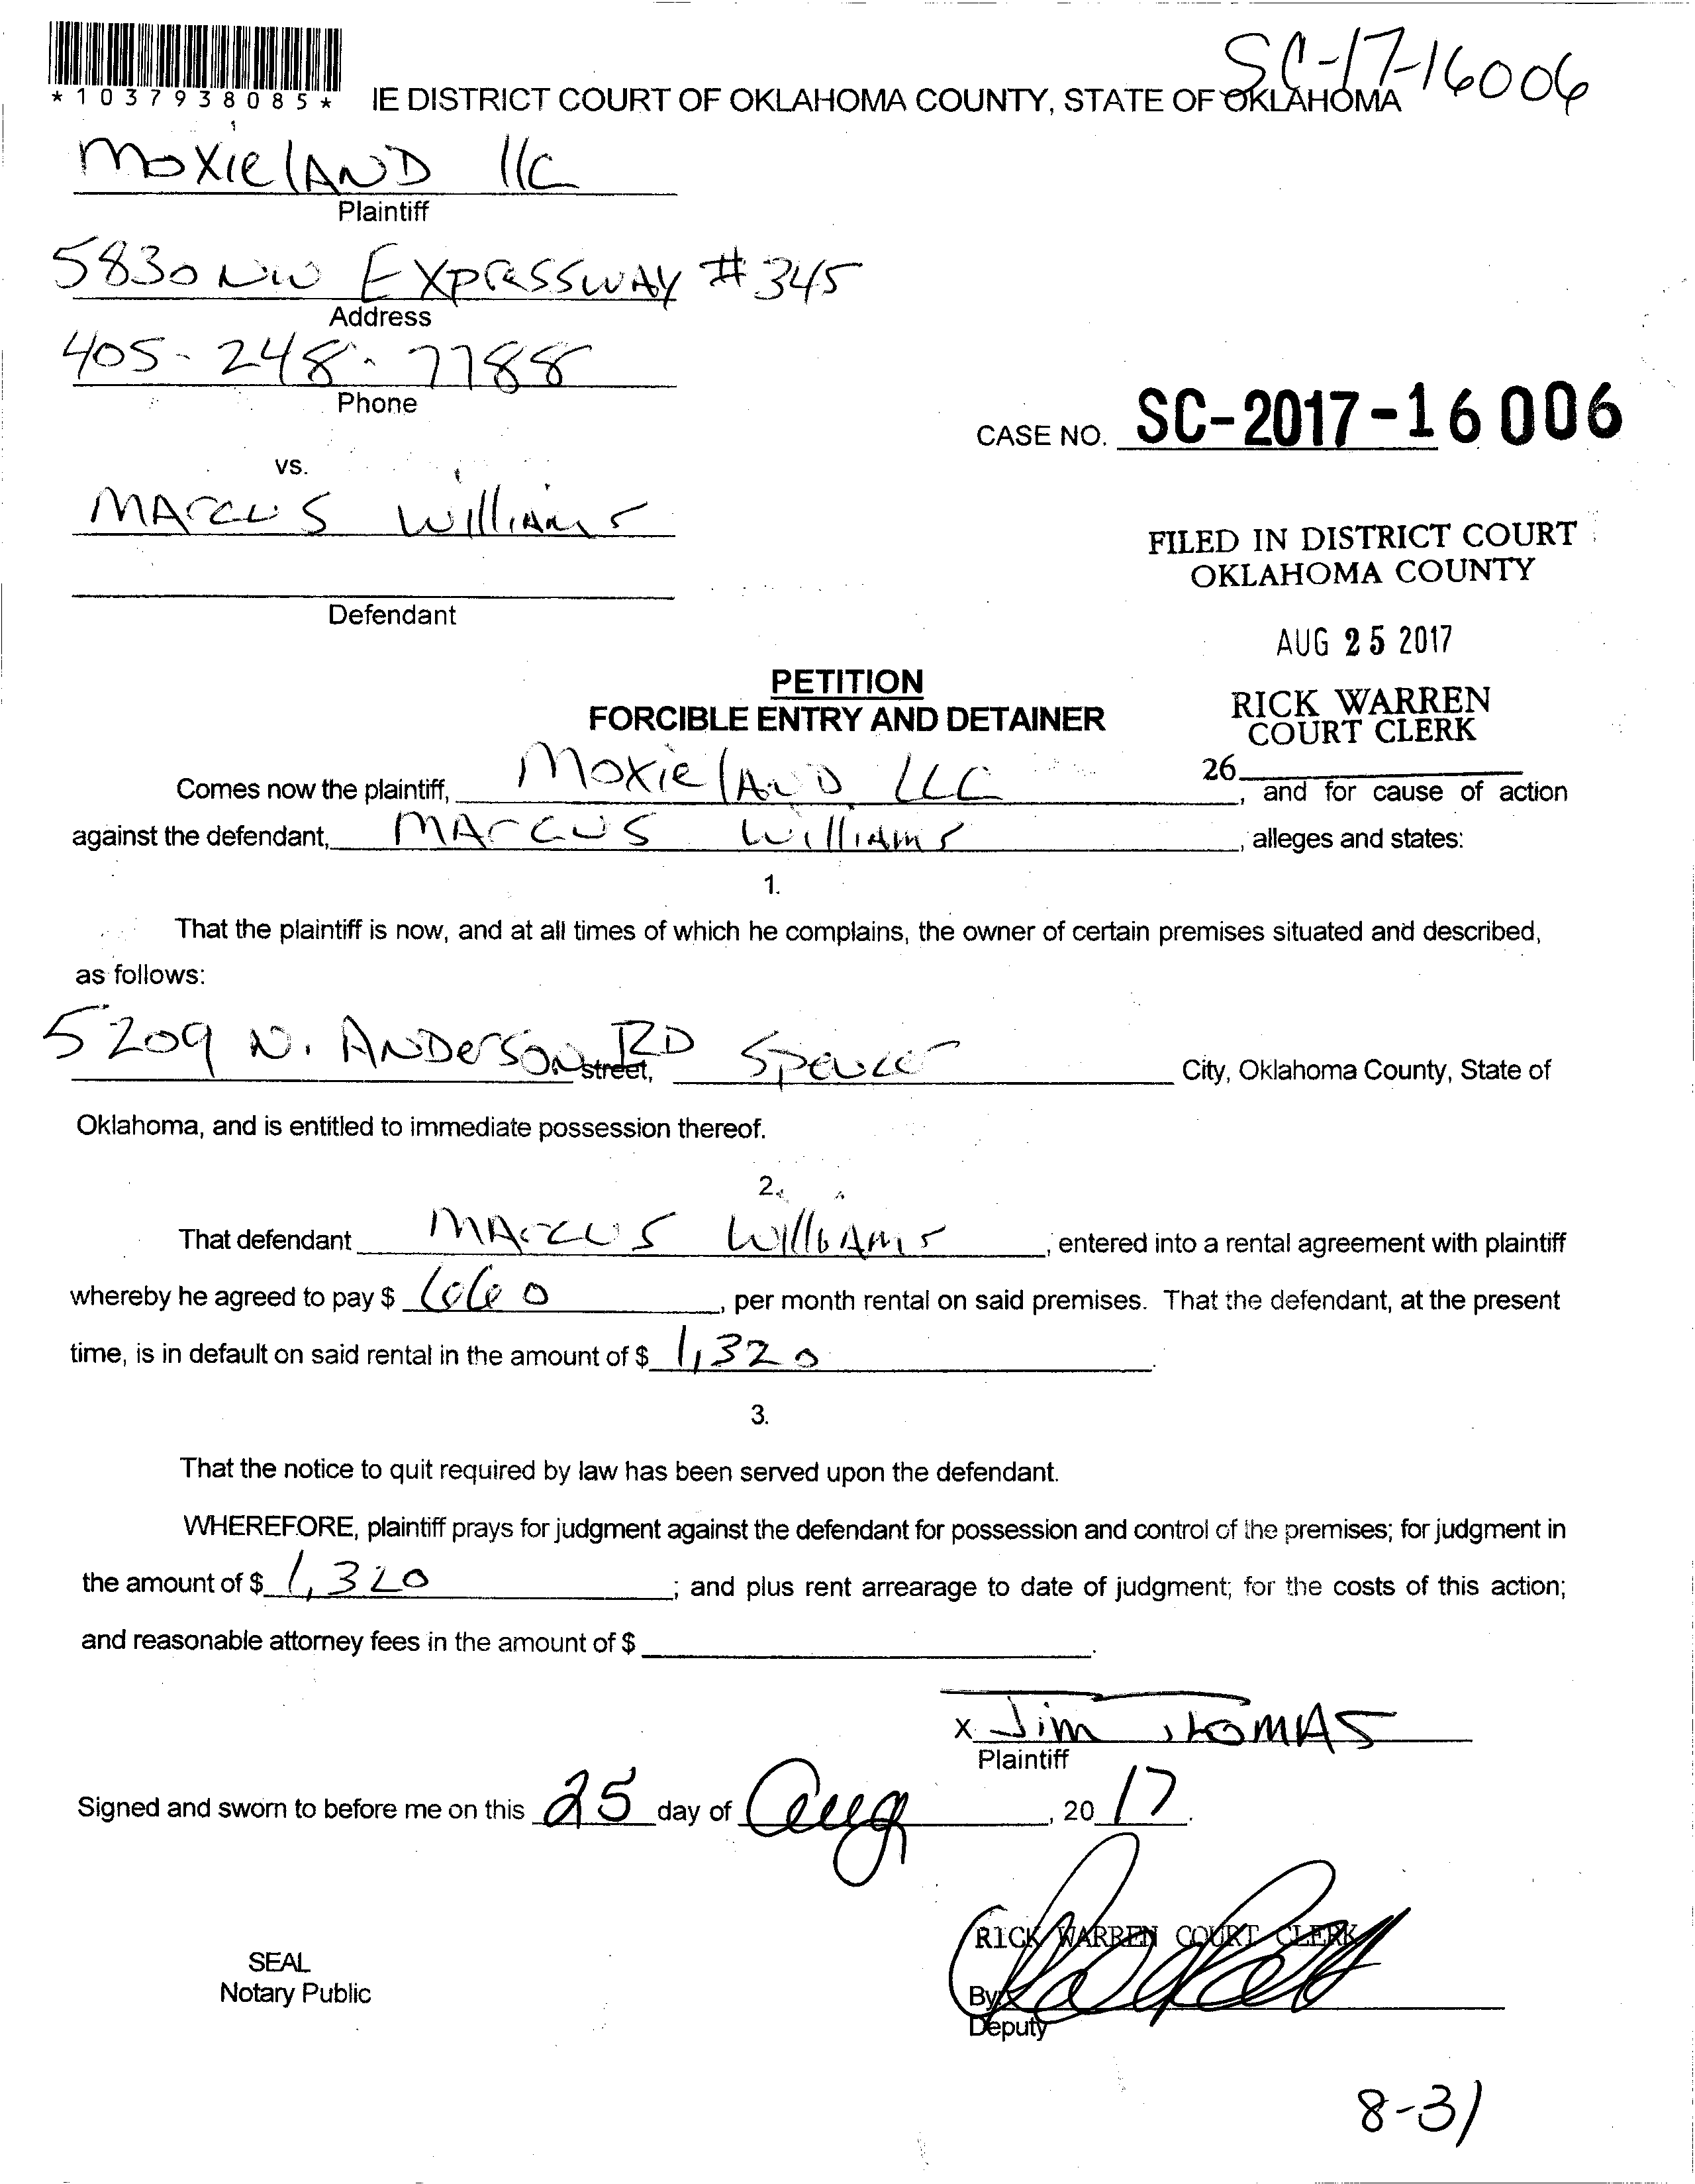 SC-17-16006
*1037938085*
IE DISTRICT COURT OF OKLAHOMA COUNTY, STATE OF OKLAHOMA
MoxielAND llC
Plaintiff
5830 NW EXpRESSWAY #345
Address
405-248-7788
Phone
CASE NO. SC-2017-16006
vs.
MArcus WilliAms
FILED IN DISTRICT COURT
OKLAHOMA COUNTY
Defendant
AUG 25 2017
PETITION
FORCIBLE ENTRY AND DETAINER
RICK WARREN
COURT CLERK
26
Comes now the plaintiff, MoxielAND LLC, and for cause of action
against the defendant, MArcus WilliAms, alleges and states:
1.
That the plaintiff is now, and at all times of which he complains, the owner of certain premises situated and described,
as follows:
5209 N. ANDersoN RD street, Spencer City, Oklahoma County, State of
Oklahoma, and is entitled to immediate possession thereof.
2.
That defendant MArcus WilliAms, entered into a rental agreement with plaintiff
whereby he agreed to pay $ 660, per month rental on said premises. That the defendant, at the present
time, is in default on said rental in the amount of $ 1,320.
3.
That the notice to quit required by law has been served upon the defendant.
WHEREFORE, plaintiff prays for judgment against the defendant for possession and control of the premises; for judgment in
the amount of $ 1,320; and plus rent arrearage to date of judgment; for the costs of this action;
and reasonable attorney fees in the amount of $.
x Jim ThOMAS
Plaintiff
Signed and sworn to before me on this 25 day of Aug, 2017.
RICK WARREN COURT CLERK
SEAL
Notary Public
By:
Deputy
8-31